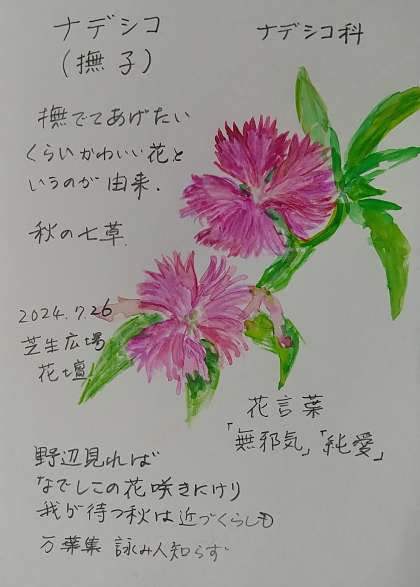 ナデシコ
(撫子)
ナデシコ科
撫でてあげたい
くらいかわいい花と
いうのが由来.
秋の七草.
2024.7.26
芝生広場
花壇
花言葉
「無邪気」「純愛」
野辺見れば
なでしこの花咲きにけり
我が待つ秋は近づくらしも
万葉集 詠み人知らず